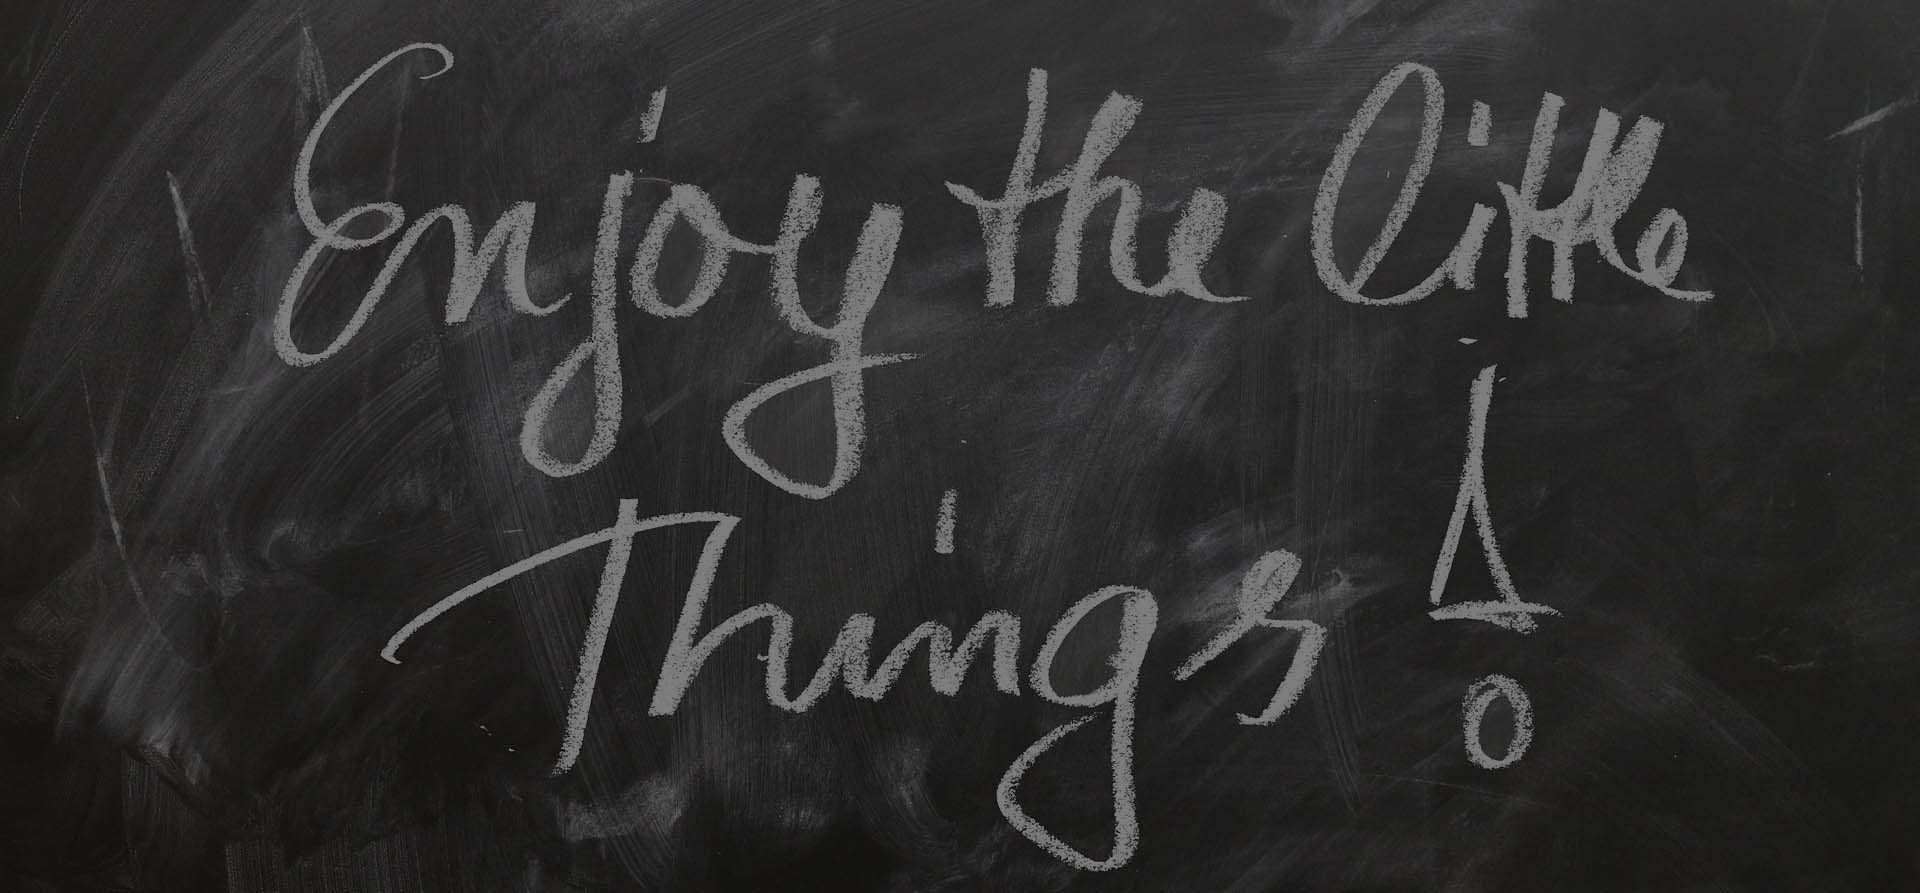 Enjoy the little
Things!